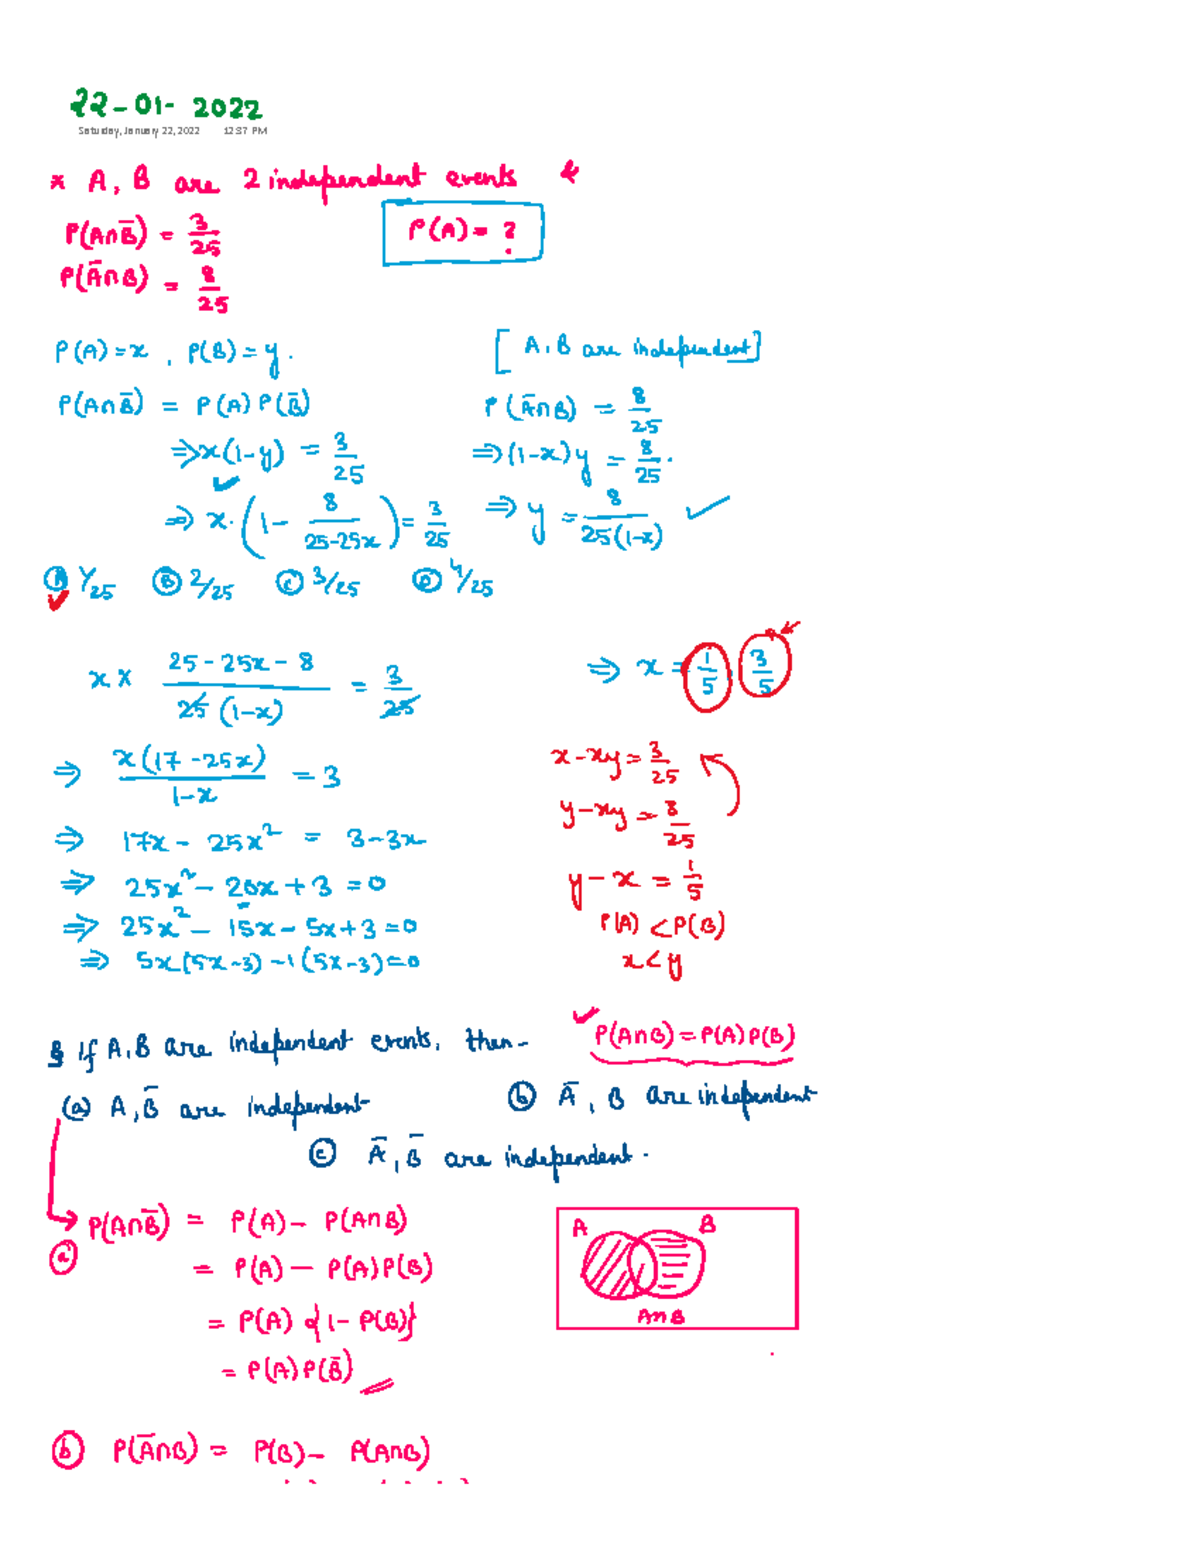 22-01-2022
Saturday, January 22, 2022 12:37 PM
* A, B are 2 independent events &
P(A∩B̄) = 3/25
P(A) = ?
P(Ā∩B) = 8/25
P(A) = x , P(B) = y .
[A, B are independent]
P(A∩B̄) = P(A) P(B̄)
P(Ā∩B) = 8/25
⇒ x(1-y) = 3/25
⇒ (1-x)y = 8/25 .
⇒ x · (1 - 8/(25-25x)) = 3/25
⇒ y = 8/(25(1-x))
(A) 1/25 (B) 2/25 (C) 3/25 (D) 4/25
x × (25-25x-8)/(25(1-x)) = 3/25
⇒ x = 1/5, 3/5
⇒ x(17-25x)/(1-x) = 3
⇒ 17x - 25x² = 3-3x
⇒ 25x² - 20x + 3 = 0
⇒ 25x² - 15x - 5x + 3 = 0
⇒ 5x(5x-3) -1(5x-3) = 0
x - xy = 3/25
y - xy = 8/25
y - x = 1/5
P(A) < P(B)
x < y
§ If A, B are independent events, then-
P(A∩B) = P(A) P(B)
(a) A, B̄ are independent
(b) Ā, B are independent
(c) Ā, B̄ are independent .
(a) P(A∩B̄) = P(A) - P(A∩B)
= P(A) - P(A) P(B)
= P(A) {1 - P(B)}
= P(A) P(B̄)
A B
A∩B
(b) P(Ā∩B) = P(B) - P(A∩B)